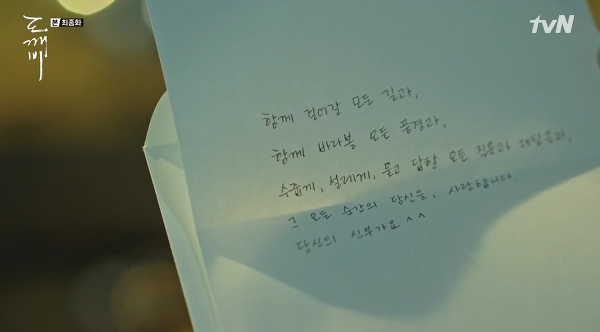 도깨비
본 최종화
tvN
함께 걸어갈 모든 길과,
함께 바라볼 모든 풍경과,
수줍게, 설레게, 묻고 답할 모든 질문과 대답들과,
그 모든 순간의 당신을, 사랑합니다.
당신의 신부가요 ^^